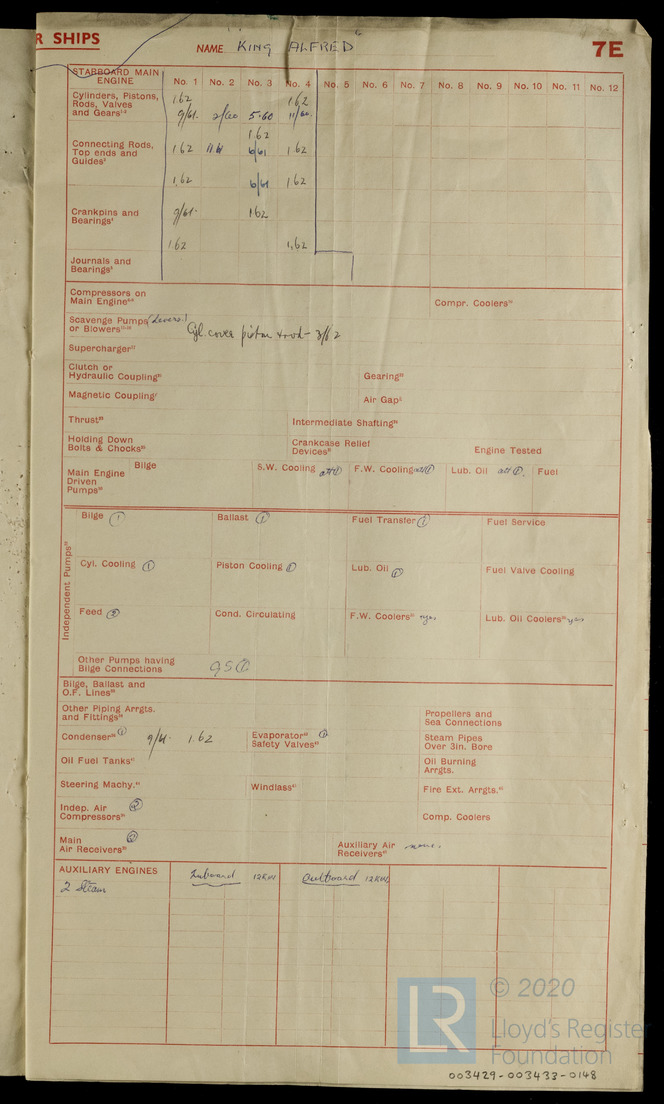 R SHIPS
NAME "KING ALFRED"
7E
STARBOARD MAIN ENGINE No. 1 No. 2 No. 3 No. 4 No. 5 No. 6 No. 7 No. 8 No. 9 No. 10 No. 11 No. 12
Cylinders, Pistons, 1.62 1.62
Rods, Valves
and Gears 9/61. 2/60 5.60 11/60.
1.62
Connecting Rods, 1.62 11.61 6/61 1.62
Top ends and
Guides
1.62 6/61 1.62
Crankpins and 9/61. 1.62
Bearings
1.62 1.62
Journals and
Bearings
Compressors on
Main Engine
Compr. Coolers
Scavenge Pumps (Levers)
or Blowers Cyl. cover piston & rod - 3/62
Supercharger
Clutch or
Hydraulic Coupling Gearing
Magnetic Coupling Air Gap
Thrust Intermediate Shafting
Holding Down
Bolts & Chocks
Crankcase Relief
Devices
Engine Tested
Main Engine
Driven
Pumps
Bilge S.W. Cooling att ① F.W. Cooling att ① Lub. Oil att ①. Fuel
Independent Pumps
Bilge ① Ballast ① Fuel Transfer ① Fuel Service
Cyl. Cooling ① Piston Cooling ① Lub. Oil ① Fuel Valve Cooling
Feed ② Cond. Circulating F.W. Coolers yes Lub. Oil Coolers yes
Other Pumps having
Bilge Connections GS ①
Bilge, Ballast and
O.F. Lines
Other Piping Arrgts.
and Fittings
Propellers and
Sea Connections
Condenser ① 9/61. 1.62
Evaporator ①
Safety Valves
Steam Pipes
Over 3in. Bore
Oil Fuel Tanks
Oil Burning
Arrgts.
Steering Machy. Windlass Fire Ext. Arrgts.
Indep. Air ②
Compressors
Comp. Coolers
Main ②
Air Receivers
Auxiliary Air none.
Receivers
AUXILIARY ENGINES Inboard 12KW Outboard 12KW
2 Steam
LR
© 2020
Lloyd's Register
Foundation
003429-003433-0148